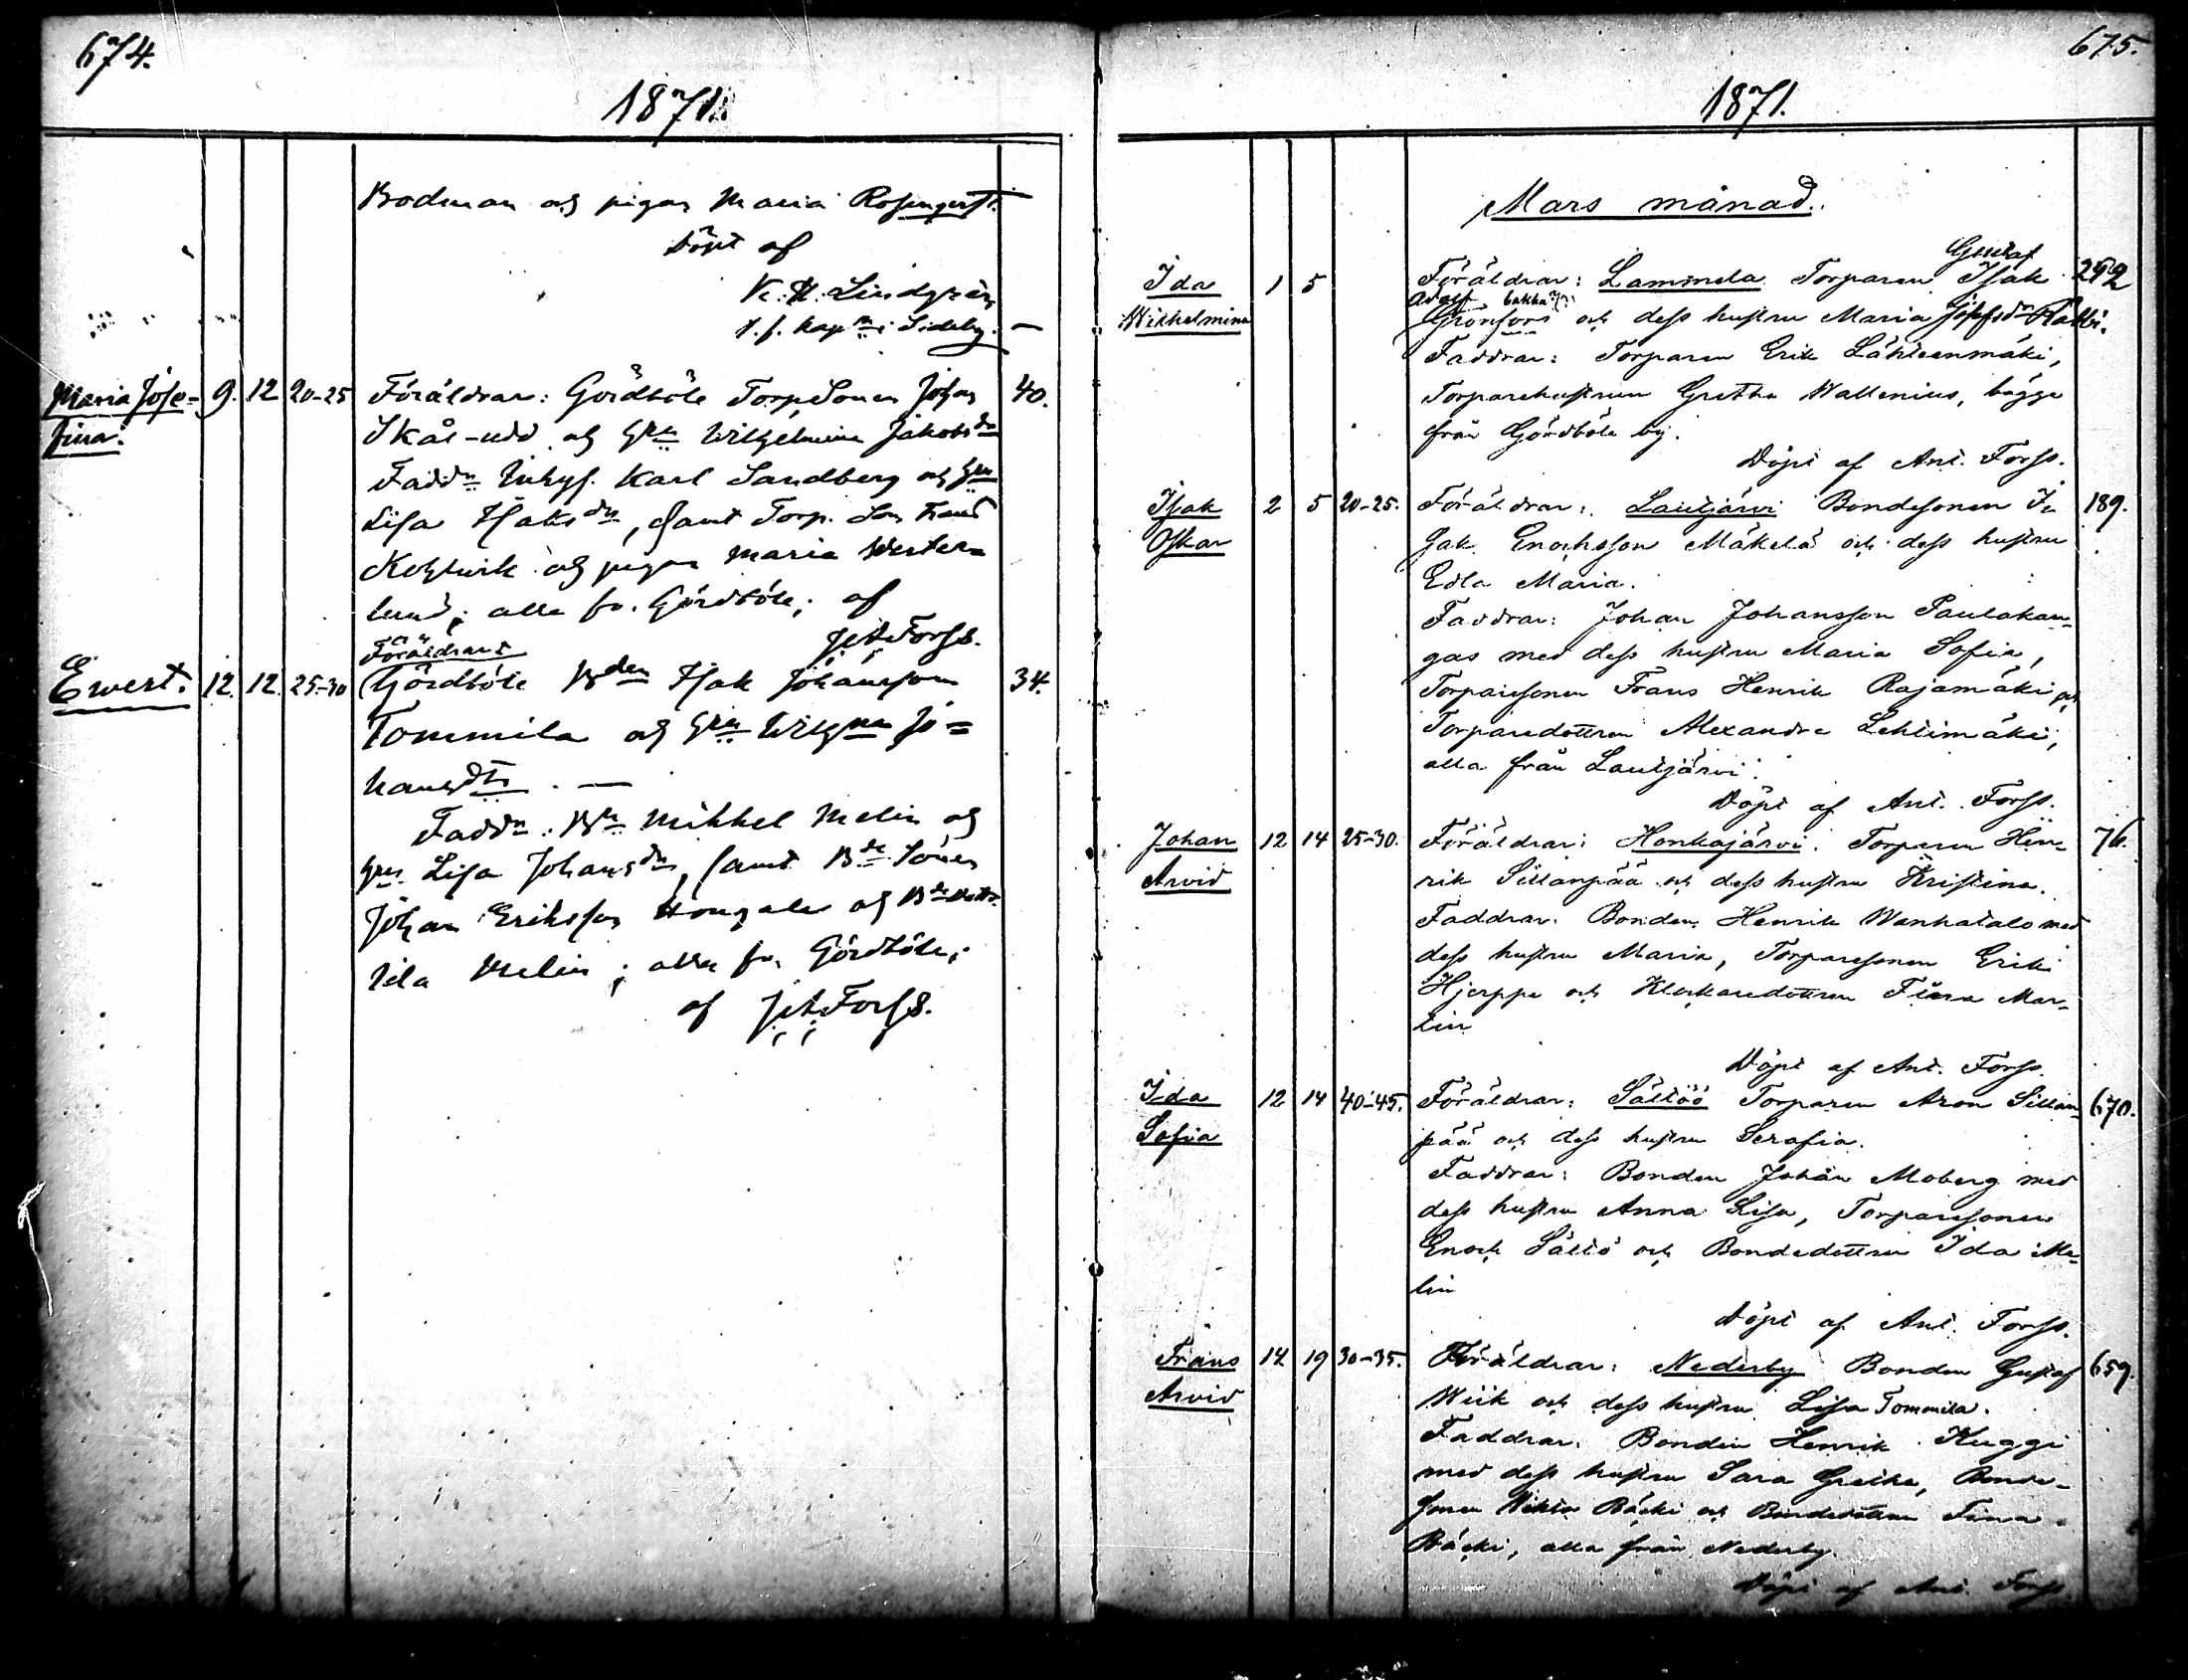 674.
1871.
Bodman och pigan Maria Rosenqvist.
Döpt af
K. H. Lindgrén,
t. f. kapn i Sideby. —
Maria Jose- 9. 12 20-25 Föräldrar: Gördböle Torp.Sonen Johan 40.
fina. Skål-udd och hru Wilhelmina Jakobsdr
Faddr Inhys. Karl Sandberg och hu
Lisa Isaksdr, samt Torp. Son
och pigan Maria Wester-
lund; alla fr. Gördböle; af
J. A. Forss.
Föräldrar:
Ewert. 12. 12. 25-30 Gördböle Bden Isak Johansson 34.
Tommila och hru Wilhna Jo=
hansdtr. —
Faddr: Bn Mikkel Melin och
hru Lisa Johansdr, samt Bde Sonen
Johan Eriksson och Bde dottr
Melin; alla fr. Gördböle;
af J. A. Forss.
675.
1871.
Mars månad.
Gustaf
Ida 1 5 Föräldrar: Lammela Torparen Isak 292
Adolf
Wilhelmina Grönfors och dess hustru Maria Josefsdr Rabbi.
Faddrar: Torparen Erik Lähteenmäki,
Torparehustrun Gretha Wallenius, bägge
från Gördböle by.
Döpt af Ant. Forss.
Isak 2 5 20-25. Föräldrar: Lautjärvi Bondesonen I- 189.
Oskar sak Enochsson Mäkelä och dess hustru
Edla Maria.
Faddrar: Johan Johansson Paulakan-
gas med dess hustru Maria Sofia,
Torparesonen Frans Henrik Rajamäki och
Torparedottren Alexandra Lehtimäki,
alla från Lautjärvi.
Döpt af Ant. Forss.
Johan 12 14 25-30. Föräldrar: Honkajärvi. Torparen Hen- 76.
Arvid rik Sillanpää och dess hustru Kristina.
Faddrar: Bonden Henrik Wanhatalo med
dess hustru Maria, Torparesonen Erik
Hjerppe och Klockaredottren Fina Mar-
tin
Döpt af Ant. Forss.
Ida 12 14 40-45. Föräldrar: Sältöö Torparen Aron Sillan- 670.
Sofia pää och dess hustru Serafia.
Faddrar: Bonden Johan Moberg med
dess hustru Anna Lisa, Torparesonen
Enoch Sältö och Bondedottren Ida Me-
lin
Döpt af Ant. Forss.
Frans 14 19 30-35. Föräldrar: Nederby Bonden Gustaf 659.
Arvid Wiik och dess hustru Lisa Tommila.
Faddrar: Bonden Henrik Kuggi
med dess hustru Sara Gretha, Bonde-
sonen Viktor Bäcki och Bondedottren Fina
Bäcki, alla från Nederby.
Döpt af Ant. Forss